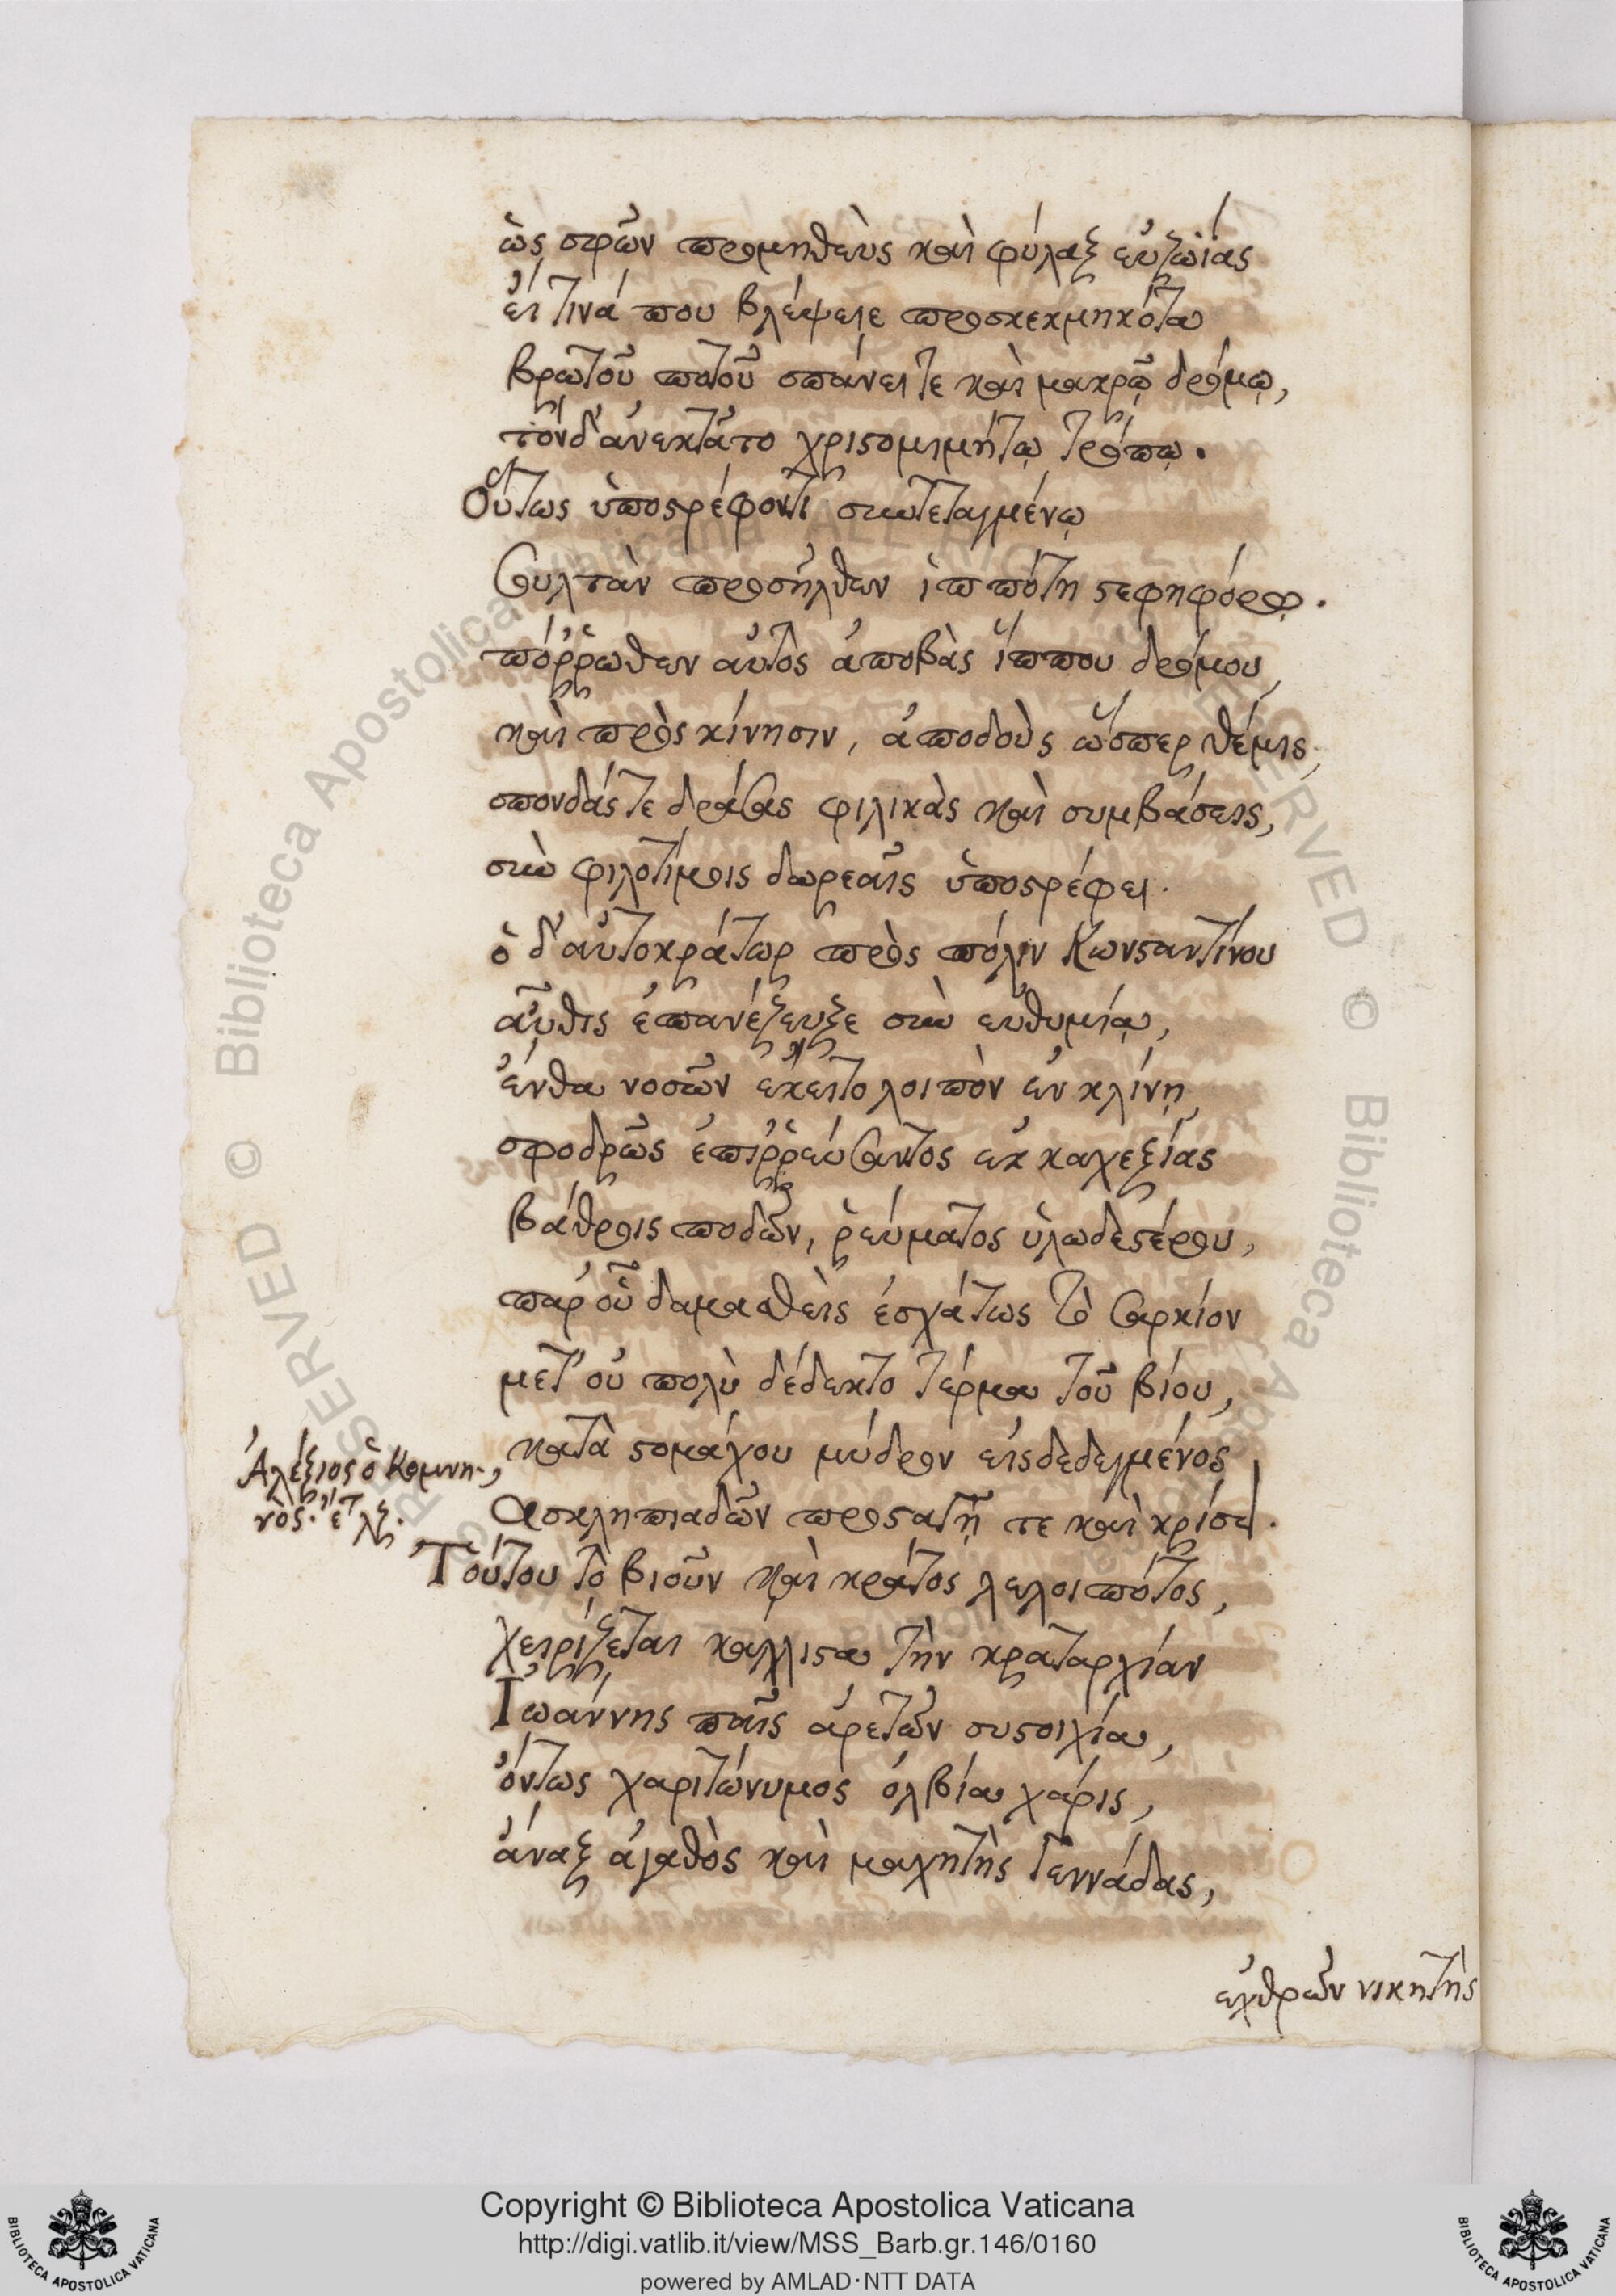 ὡς στρῶν προμηθεὺς καὶ φύλαξ εὐζωΐας
εἴ τινά που βλέψειε προσκεκμηκότα
βρωτοῦ ποτοῦ σπάνει τε καὶ μακρῷ δρόμῳ,
τόνδ' ἀνεκτᾶτο χριστομιμήτῳ τρόπῳ.
Οὕτως ὑποστρέφοντι συντεταγμένῳ
Σουλτὰν προσῆλθεν ἱππότῃ στεφηφόρῳ.
πόῤῥωθεν αὐτὸς ἀποβὰς ἵππου δρόμου,
καὶ προσκίνησιν, ἀποδοὺς ὥσπερ θέμις,
σπονδάς τε δράσας φιλικὰς καὶ συμβάσεις,
σὺν φιλοτίμοις δωρεαῖς ὑποστρέφει.
ὁ δ' αὐτοκράτωρ πρὸς πόλιν Κωνσταντίνου
αὖθις ἐπανέζευξε σὺν εὐθυμίᾳ,
ἔνθα νοσῶν ἔκειτο λοιπὸν ἐν κλίνῃ
σφοδρῶς ἐπιῤῥεύσαντος ἐκ καχεξίας
βάθροις ποδῶν, ῥεύματος ὑλωδεστέρου,
παρ' οὗ δαμασθεὶς ἐσχάτως τὸ σαρκίον
μετ' οὐ πολὺ δέδεκτο τέρμα τοῦ βίου,
κατὰ στομάχου μύδρον εἰσδεδεγμένος
Ἀλέξιος ὁ Κομνη-
νὸς. ἔτ λζ.
Ασκληπιαδῶν προσταγῇ τε καὶ κρίσει.
Τούτου τὸ βιοῦν καὶ κράτος λελοιπότος,
χειρίζεται κάλλιστα τὴν κραταρχίαν
Ἰωάννης παῖς ἀρετῶν συστοιχία,
ὄντως χαριτώνυμος ὀλβία χάρις,
ἄναξ ἀγαθὸς καὶ μαχητὴς γεννάδας,
ἐχθρῶν νικητὴς
Copyright © Biblioteca Apostolica Vaticana
http://digi.vatlib.it/view/MSS_Barb.gr.146/0160
powered by AMLAD·NTT DATA